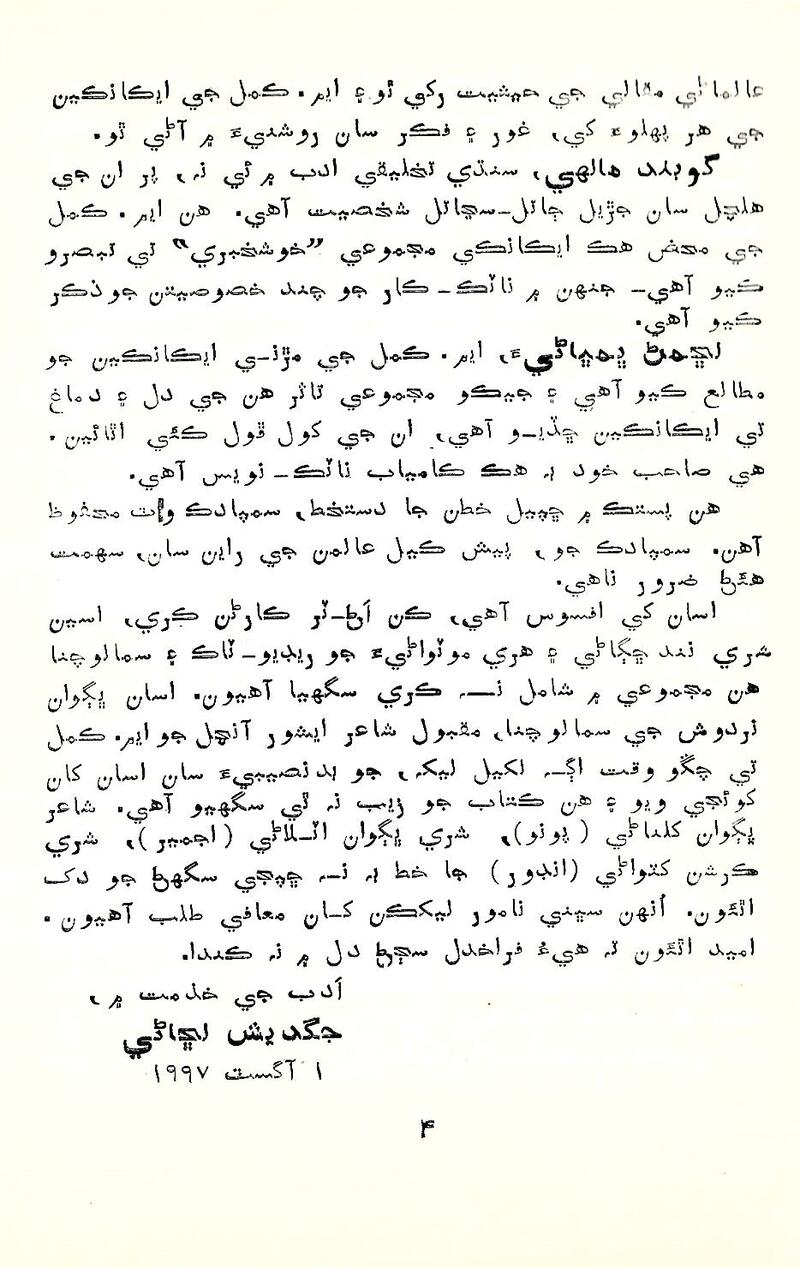 عالماڻي مقالي جي حيثيت رکي ٿو ۽ ايم. ڪمل جي ايڪانڪين
جي هر پهلوءَ کي، غور ۽ فڪر سان روشنيءَ ۾ آڻي ٿو.
گوبند مالهي، سنڌي تخليقي ادب ۾ ئي نہ، پر ان جي
هلچل سان جڙيل ڄاتل-سڃاتل شخصيت آهي. هن ايم. ڪمل
جي محض هڪ ايڪانڪي مجموعي “خوشخبري” تي تبصرو
ڪيو آهي- جنهن ۾ ناٽڪ- ڪار جو چند خصوصيتن جو ذڪر
ڪيو آهي.
لڇمڻ ڀمڀاڻيءَ، ايم. ڪمل جي مڙني ايڪانڪين جو
مطالع ڪيو آهي ۽ جيڪو مجموعي تاثر هن جي دل ۽ دماغ
تي ايڪانڪين ڇڏيو آهي، ان جي کول ڦول ڪئي اٿائين.
هي صاحب خود بہ هڪ ڪامياب ناٽڪ- نويس آهي.
هن پستڪ ۾ ڇپيل خطن جا دستخط، سمپادڪ وٽ محفوظ
آهن. سمپادڪ جو، پيش ڪيل عالمن جي راين سان، سهمت
هئڻ ضرور ناهي.
اسان کي افسوس آهي، ڪن اڻ-ٽر ڪارڻن ڪري، اسين
شري نند ڇڳاڻي ۽ هري موٽواڻيءَ جو ريڊيو- ناٽڪ ۽ سمالوچنا
هن مجموعي ۾ شامل نہ ڪري سگهيا آهيون. اسان ڀڳوان
نردوش جي سمالوچنا، مقبول شاعر ايشور آنچل جو ايم. ڪمل
تي چڱو وقت اڳ لکيل ليک، جو بدنصيبيءَ سان اسان کان
کوئجي ويو ۽ هن ڪتاب جو زيب نہ ٿي سگهيو آهي. شاعر
ڀڳوان ڪلناڻي (پونو)، شري ڀڳوان اٽلاڻي (اجمير)، شري
ڪرشن کٽواڻي (اندور) جا خط بہ نہ ڇپجي سگهڻ جو دک
اٿئون. اُنهن سڀني نامور ليکڪن کان معافي طلب آهيون.
اميد اٿئون تہ هيءُ فراخدل سڄڻ دل ۾ نہ ڪندا.
اَدب جي خدمت ۾،
جڳديش لڇاڻي
۱ آگسٽ ۱۹۹۷
۴